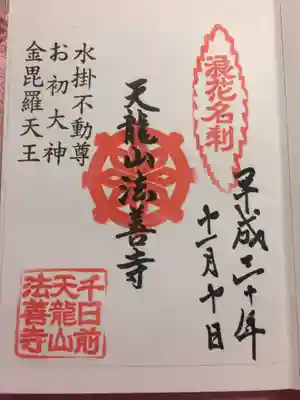 浪花名刹
平成二十年
十一月十日
天龍山法善寺
水掛不動尊
お初大神
金毘羅天王
千日前
天龍山
法善寺